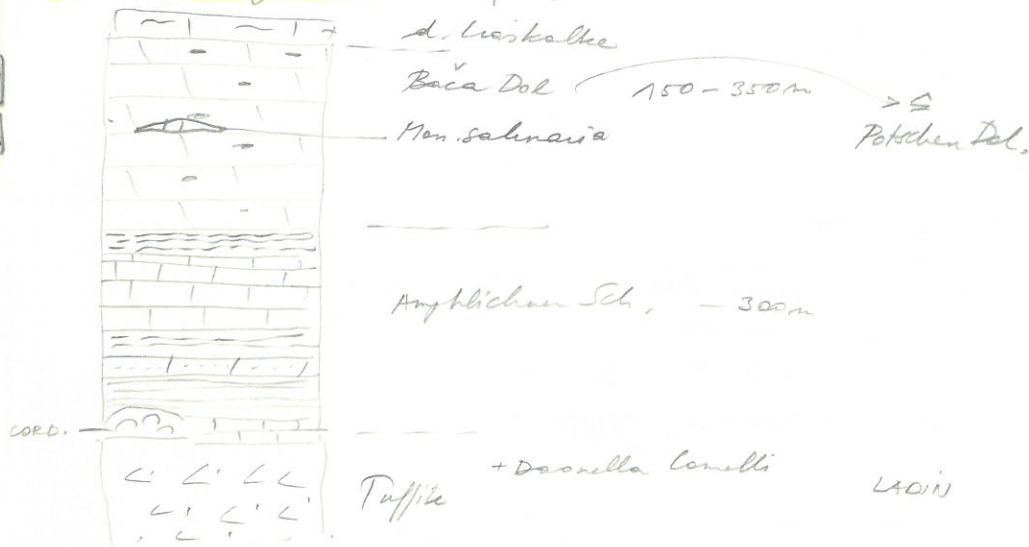 d. Liaskalke
Bača Dol 150-350m > ≤
Pötschen Dol.
Mon. salinaria
Amphiclinen Sch. - 300m
CORD.
+ Daonella Lomelli
Tuffite
LADIN